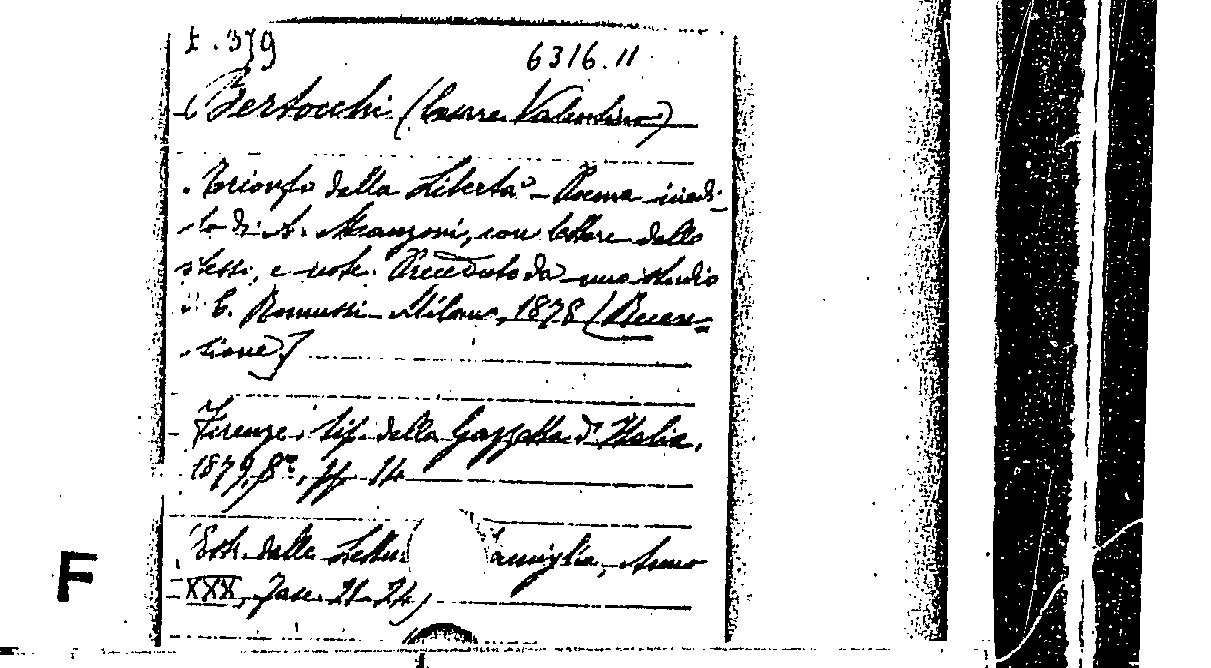 F. 379
6316.11
Bertocchi (Cesare Valentino)
Trionfo della Libertà - Poema inedi-
to di A. Manzoni, con lettere dello
stesso, e note. Preceduto da uno studio
di C. Romussi - Milano, 1878 (Recen=
sione)
Firenze, tip. della Gazzetta d'Italia,
1879, 8º, pp. 14
(Estr. dalle Lettu amiglia, Anno
XXX, Fasc. 21-24)
F